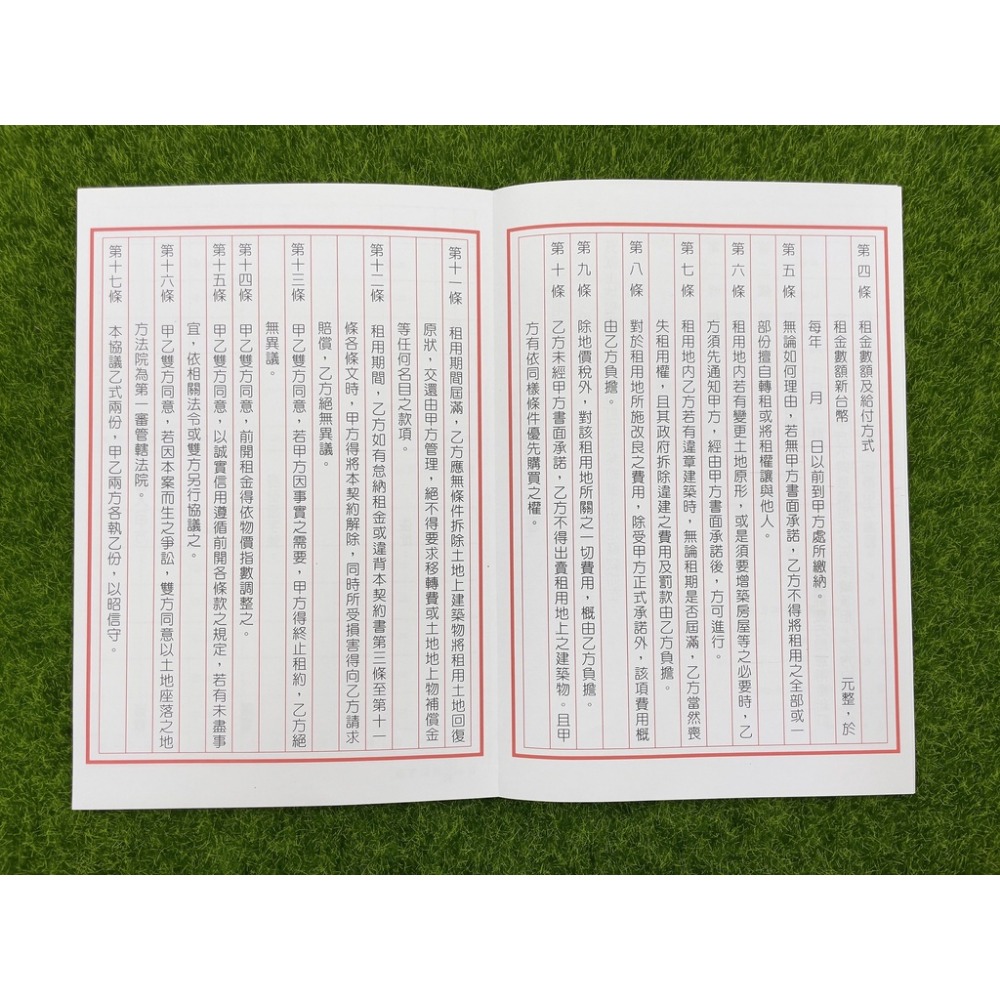 第四條 租金數額及給付方式
租金數額新台幣 元整，於
每年 月 日以前到甲方處所繳納。
第五條 無論如何理由，若無甲方書面承諾，乙方不得將租用之全部或一
部份擅自轉租或將租權讓與他人。
第六條 租用地內若有變更土地原形，或是須要增築房屋等之必要時，乙
方須先通知甲方，經由甲方書面承諾後，方可進行。
第七條 租用地內乙方若有違章建築時，無論租期是否屆滿，乙方當然喪
失租用權，且其政府拆除違建之費用及罰款由乙方負擔。
第八條 對於租用地所施改良之費用，除受甲方正式承諾外，該項費用概
由乙方負擔。
第九條 除地價稅外，對該租用地所關之一切費用，概由乙方負擔。
第十條 乙方未經甲方書面承諾，乙方不得出賣租用地上之建築物。且甲
方有依同樣條件優先購買之權。
第十一條 租用期間屆滿，乙方應無條件拆除土地上建築物將租用土地回復
原狀，交還由甲方管理，絕不得要求移轉費或土地地上物補償金
等任何名目之款項。
第十二條 租用期間，乙方如有怠納租金或違背本契約書第三條至第十一
條各條文時，甲方得將本契約解除，同時所受損害得向乙方請求
賠償，乙方絕無異議。
第十三條 甲乙雙方同意，若甲方因事實之需要，甲方得終止租約，乙方絕
無異議。
第十四條 甲乙雙方同意，前開租金得依物價指數調整之。
第十五條 甲乙雙方同意，以誠實信用遵循前開各條款之規定，若有未盡事
宜，依相關法令或雙方另行協議之。
第十六條 甲乙雙方同意，若因本案而生之爭訟，雙方同意以土地座落之地
方法院為第一審管轄法院。
第十七條 本協議乙式兩份，甲乙兩方各執乙份，以昭信守。